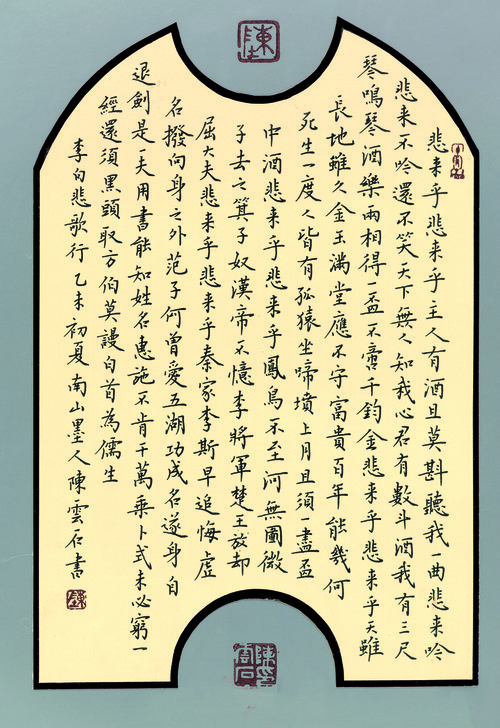 悲来乎悲来乎主人有酒且莫斟聽我一曲悲来吟
悲来不吟還不笑天下無人知我心君有數斗酒我有三尺
琴鳴琴酒樂兩相得一盃不啻千鈞金悲来乎悲来乎天雖
長地雖久金玉滿堂應不守富貴百年能幾何
死生一度人皆有孤猿坐啼墳上月且須一盡盃
中酒悲来乎悲来乎鳳鳥不至河無圖微
子去之箕子奴漢帝不憶李將軍楚王放却
屈大夫悲来乎悲来乎秦家李斯早追悔虛
名撥向身之外范子何曾愛五湖功成名遂身自
退劍是一夫用書能知姓名惠施不肯千萬乘卜式未必窮一
經還須黑頭取方伯莫謾白首為儒生
李白悲歌行 乙未初夏南山墨人陳雲石書